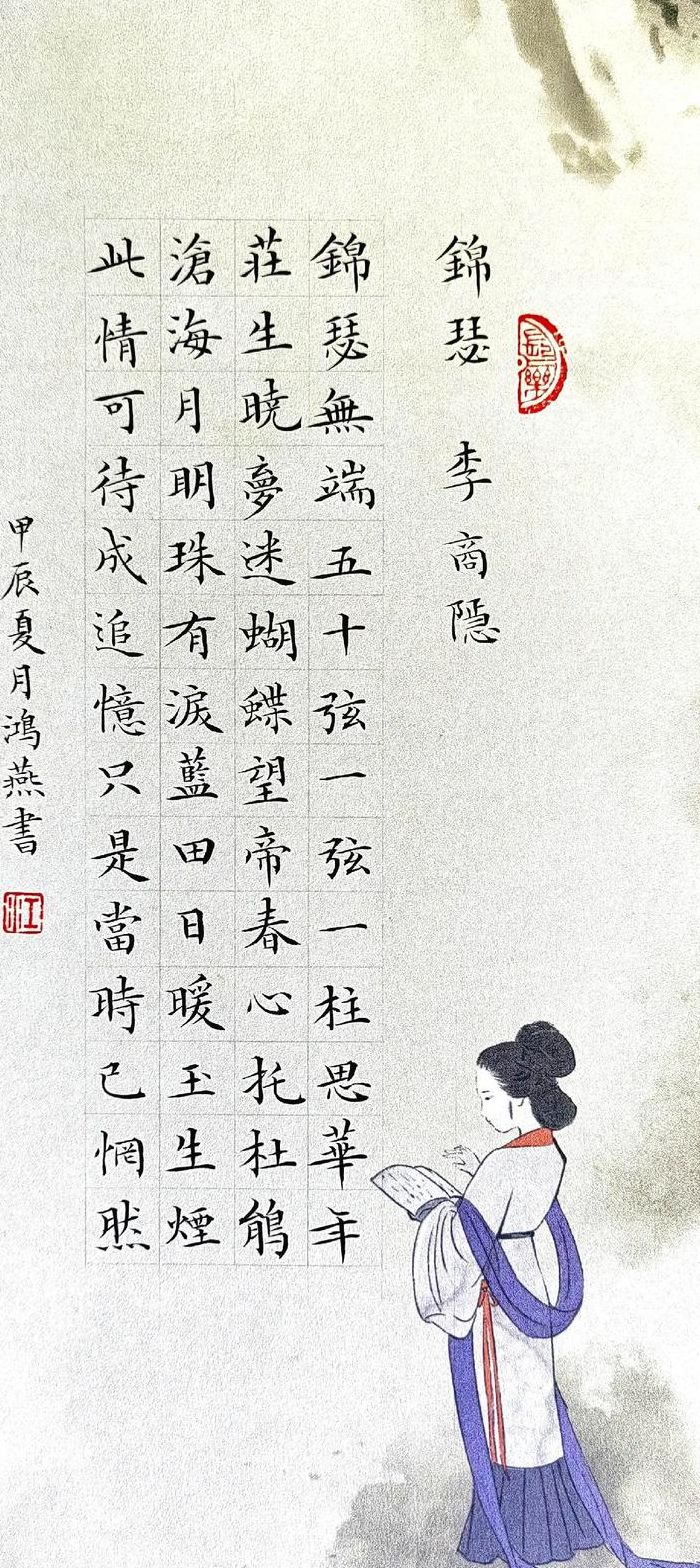 錦瑟 李商隱
錦瑟無端五十弦一弦一柱思華年
莊生曉夢迷蝴蝶望帝春心托杜鵑
滄海月明珠有淚藍田日暖玉生煙
此情可待成追憶只是當時已惘然
甲辰夏月鴻燕書